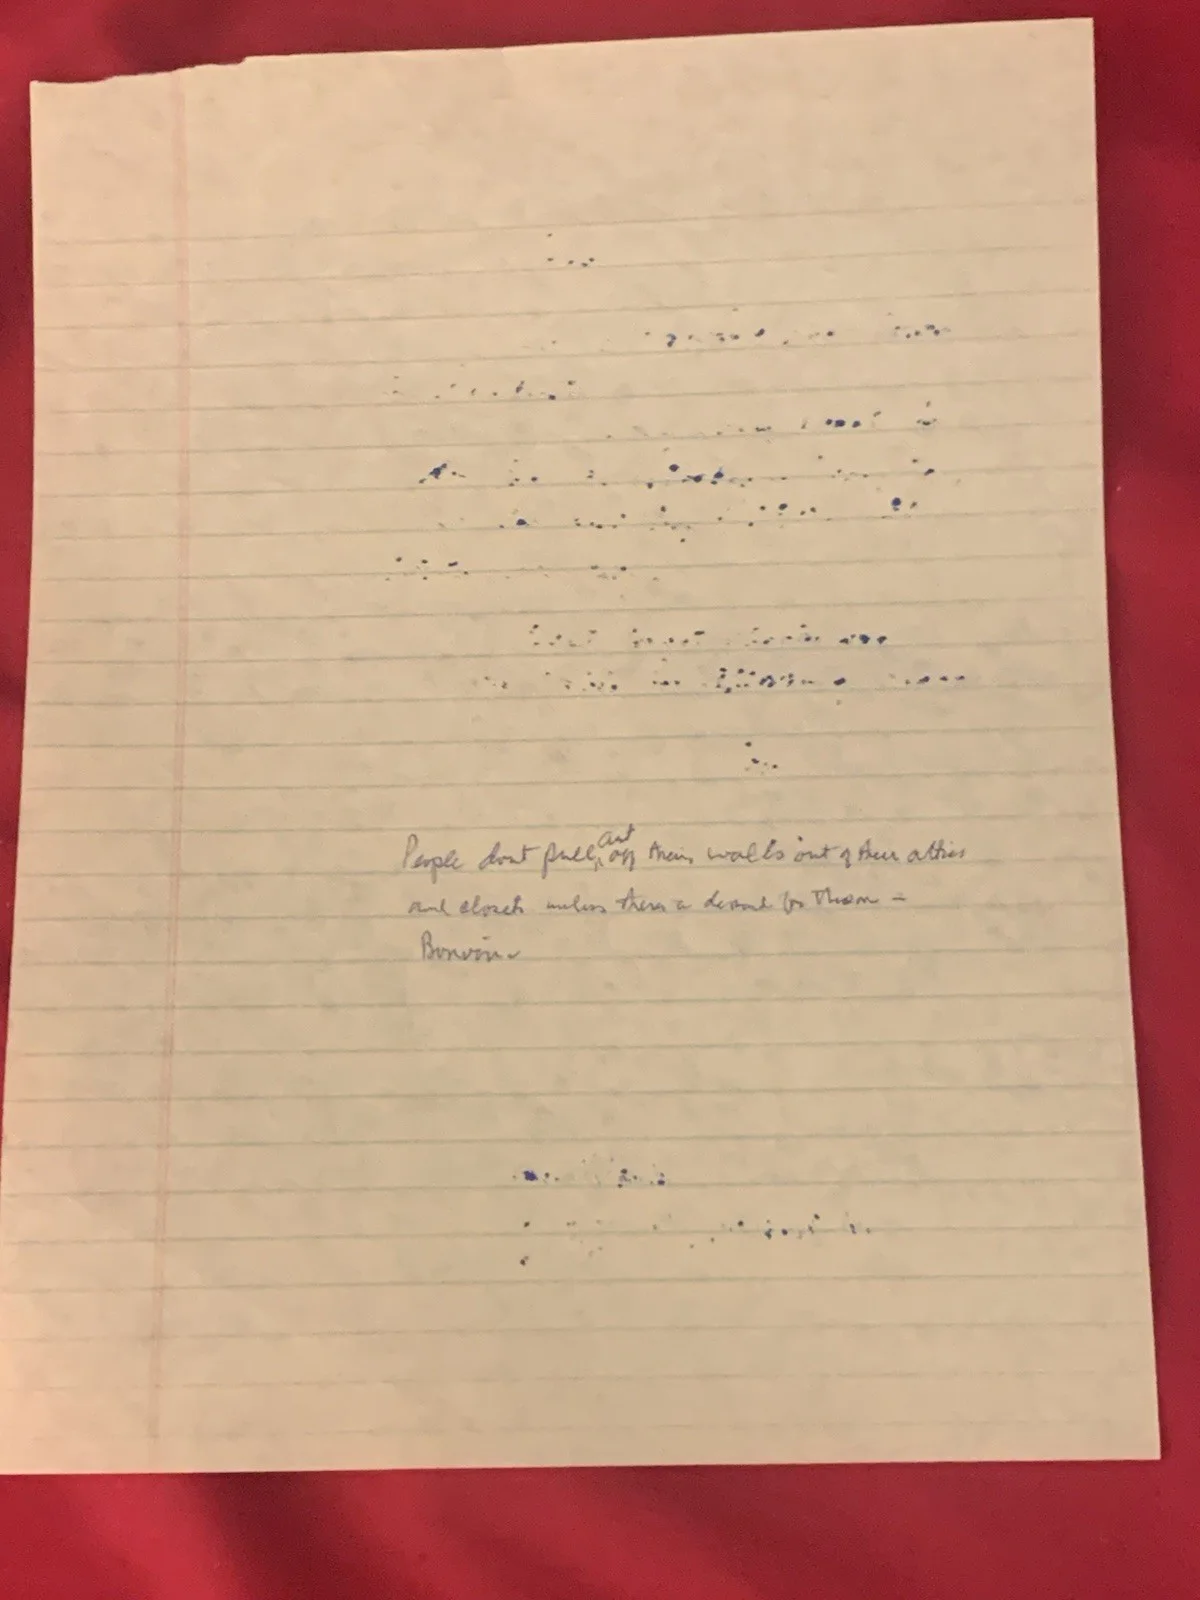 People dont pull art off their walls out of their attics
and closets unless theres a demand for them –